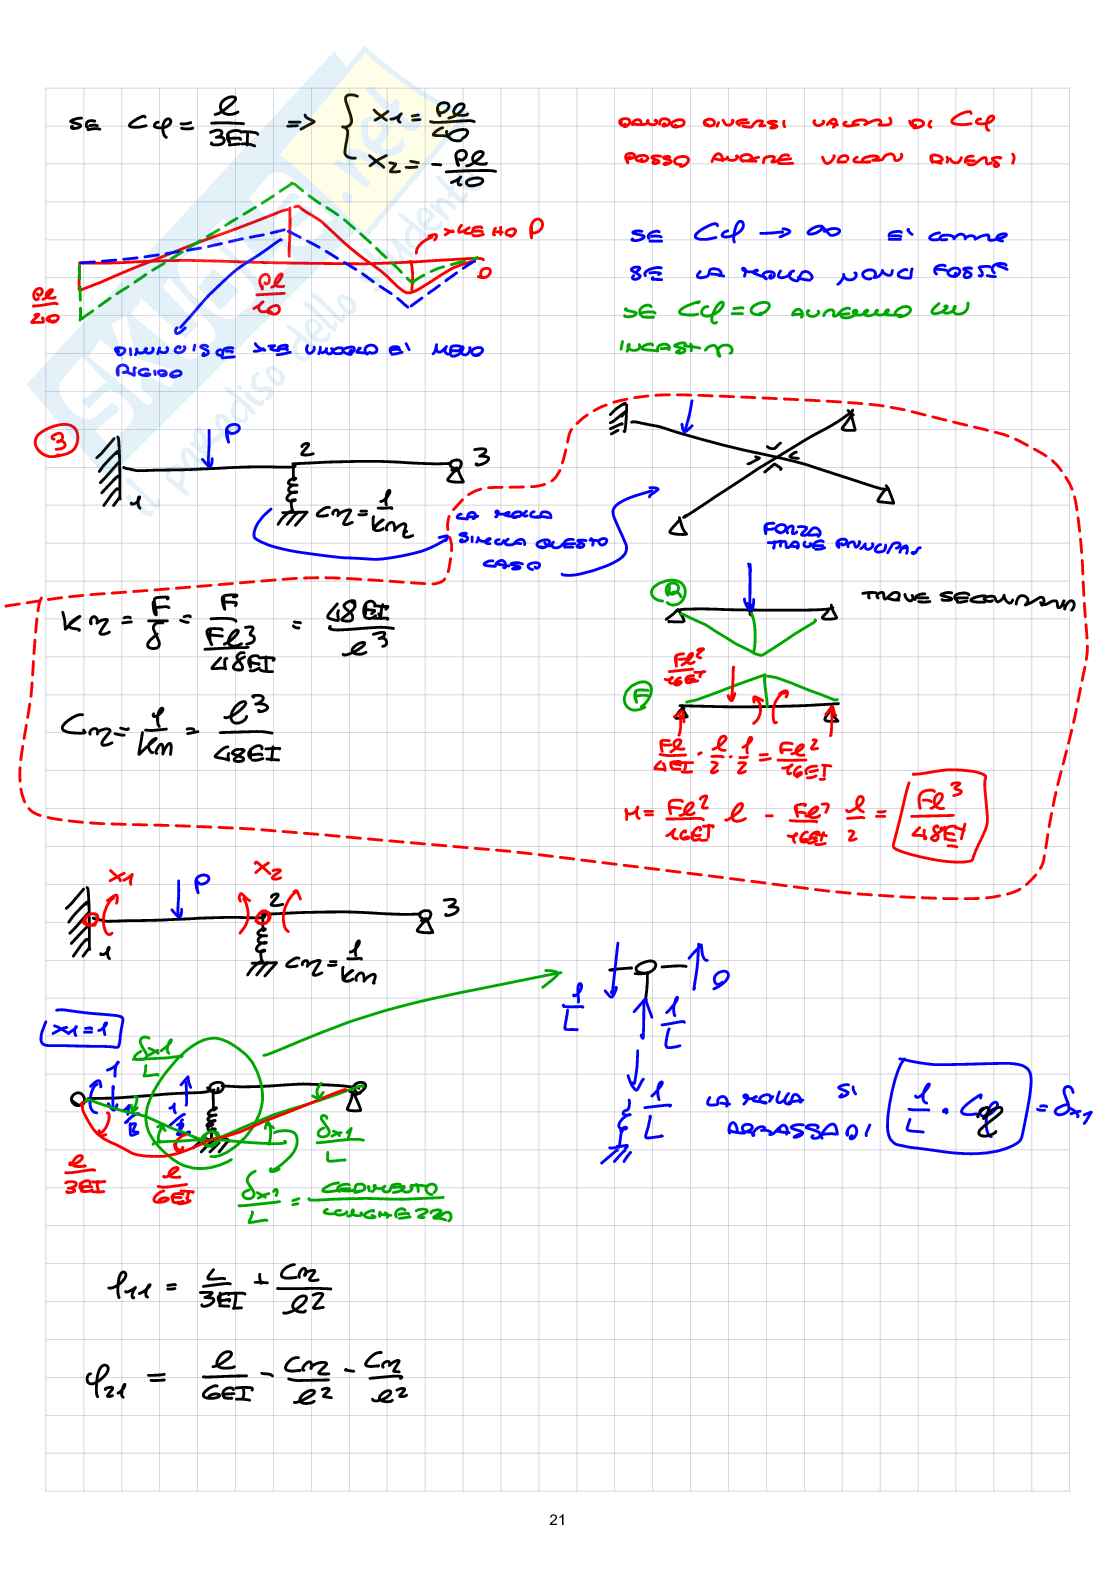 SE Cφ = l/3EI => { x1 = Pl/40
x2 = - Pl/10
DANDO DIVERSI VALORI DI Cφ
POSSO AVERE VALORI DIVERSI
SE Cφ → ∞ E' COME
SE LA MOLLA NON CI FOSSE
SE Cφ = 0 AVREMMO UN
INCASTRO
P
0
Pl/20
Pl/10
DIMINUISCE
MENO
RIGIDO
3
P
1
2
3
Cm = 1/Km
LA MOLLA
SIMULA QUESTO
CASO
FORZA
TRAVE PRINCIPALE
TRAVE SECONDARIA
R
F
Km = F/δ = F/(Fl³/48EI) = 48EI/l³
Cm = 1/Km = l³/48EI
Fl²/16EI
Fl/4EI · l/2 · 1/2 = Fl²/16EI
M = Fl²/16EI l - Fl²/16EI l/2 = Fl³/48EI
x1
P
x2
1
2
3
Cm = 1/Km
x1 = 1
δx1/L
1
l/3EI
l/6EI
δx1/L
δx1/L = CEDIMENTO/LUNGHEZZA
1/L
1/L
0
1/L
LA MOLLA SI
ABBASSA DI
= δx1
φ11 = L/3EI + Cm/l²
φ21 = l/6EI - Cm/l² - Cm/l²
21